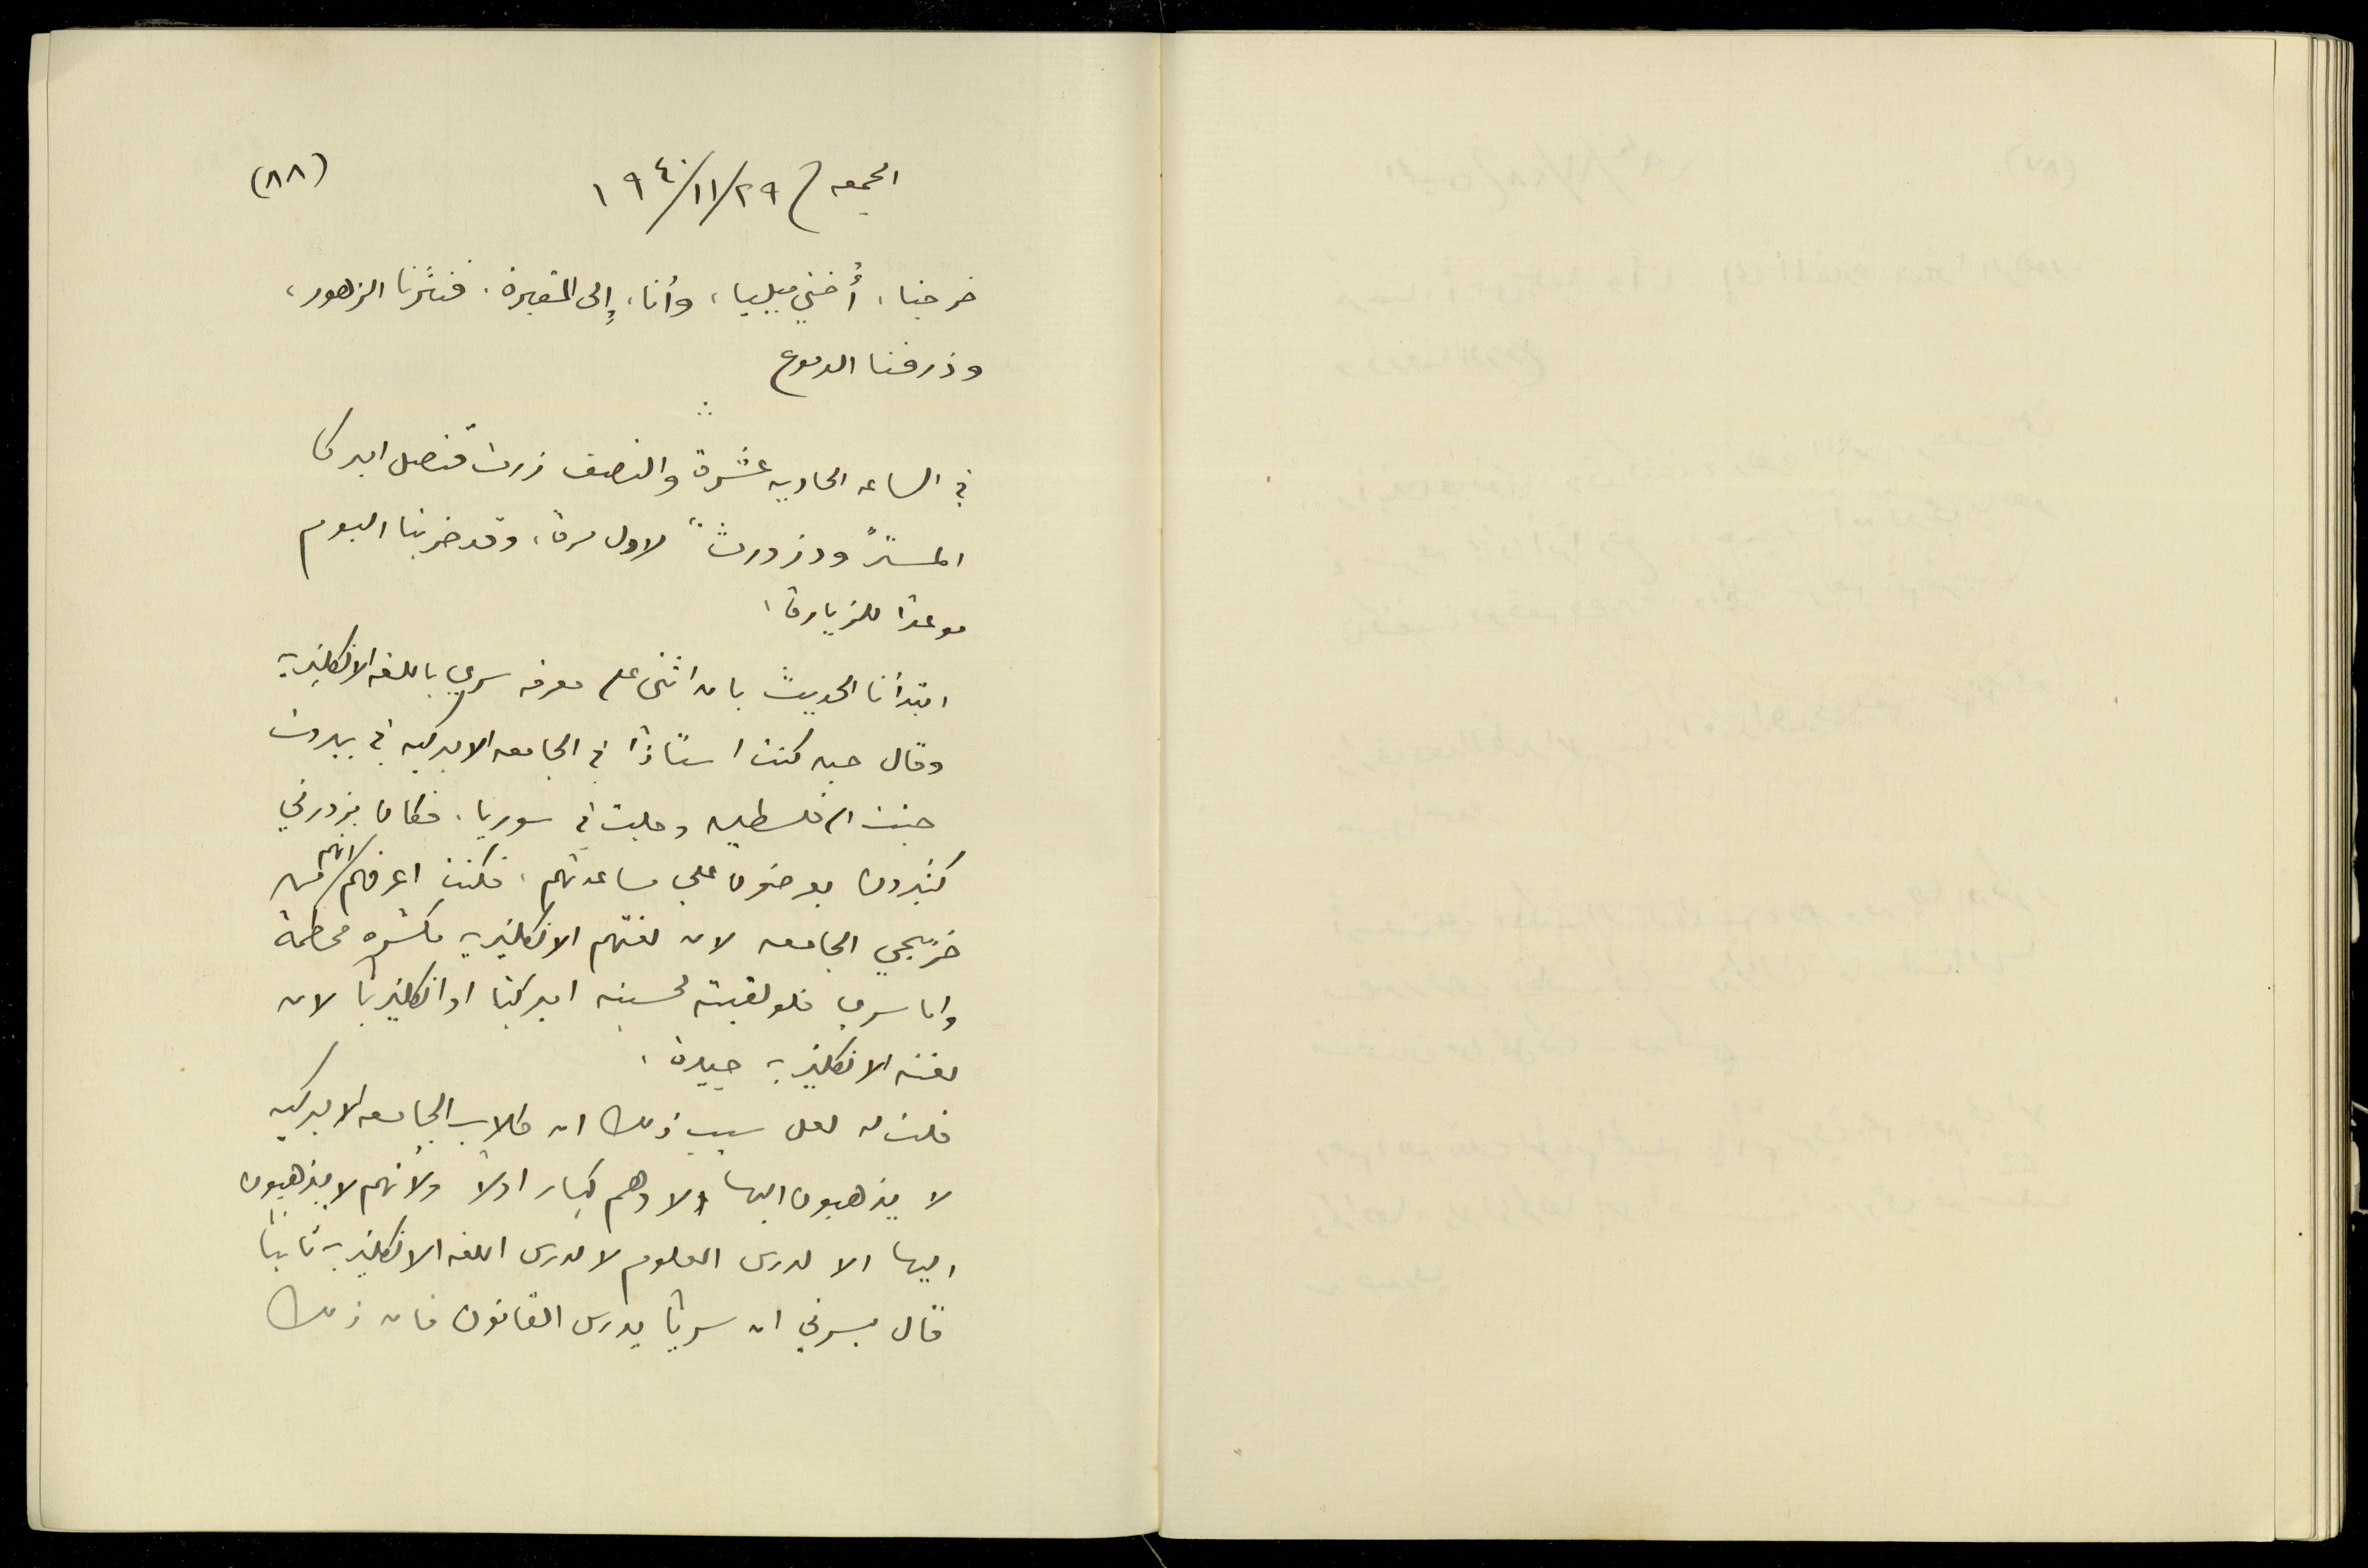 (٨٨)
الجمعه ٢٩/١١/١٩٤٠
خرجنا، أُختي ميليا، وأنا، إلى المقبرة. فنثرنا الزهور،
وذرفنا الدموع
في الساعه الحاديه عشرة والنصف زرت قنصل اميركا
المستر "ودزورث" لاول مرة، وقد ضربنا اليوم
موعدًا للزيارة.
ابتدأنا الحديث بان اثنى على معرفه سري باللغه الانكليزيه
وقال حين كنت استاذًا في الجامعه الاميركيه في بيروت
جئت الى فلسطين وجلت في سوريا. فكان يزورني
كثيرون يعرضون علي مساعدتهم، فكنت اعرفهم انهم من
خرّيجي الجامعه لان لغتهم الانكليزيه مكسره محطمة
واما سري فلو لقيته لحسبته اميركيًا او انكليزيًا لان
لغته الانكليزيه جيدة.
قلت له لعل سبب ذلك ان طلاب الجامعه الاميركيه
لا يذهبون اليها الا وهم كبار اولًا ولأنهم لا يذهبون
اليها الا لدرس العلوم لا لدرس اللغه الانكليزيه ثانيًا
قال يسرني ان سريًا يدرس القانون فان ذلك